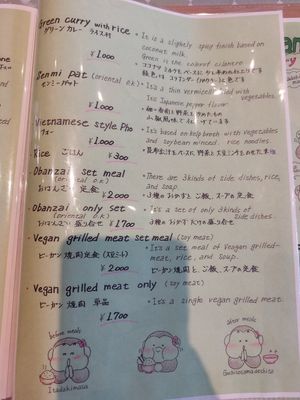 Green curry with rice
グリーン カレー ライス付
¥1.000
• It is a slightly spicy finish based on coconut milk.
Green is the colour cilantro
Senmi pat (oriental o.k)
センミー パット
¥1.000
• Is a thin vermicelli with vegetables.
The Japanese pepper flavor
Vietnamese style Pho
フォー
¥1.000
• It's based on kelp broth with vegetables and soybean minced rice noodles.
Rice ごはん
¥300
Obanzai set meal
(oriental o.k)
おばんざい 定食
¥2.000
• There are 3 kinds of side dishes, rice, and soup.
3種のおかずとご飯、スープの定食
Obanzai only set
(oriental o.k)
おばんざい 盛り合せ
¥1.700
• It's a set of only 3 kinds of side dishes.
Vegan grilled meat set meal (soy meat)
ビーガン 焼肉定食 (大豆ミート)
¥2.000
• It's a set meal of Veagan grilled meat, rice, and soup.
ビーガン焼肉と ご飯、スープの定食
Vegan grilled meat only (soy meat)
ビーガン 焼肉 単品
¥1.700
• It's a single vegan grilled meat.
before meals
Itadakimasu
after meals
Gochisosamadeshita